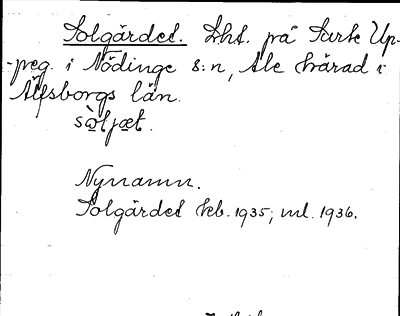 Solgärdet. Lht. på Surte Up-
-peg. i Nödinge s:n, Ale härad i
Älfsborgs län.
sòljæt.
Nynamn.
Solgärdet kb. 1935; ml. 1936.